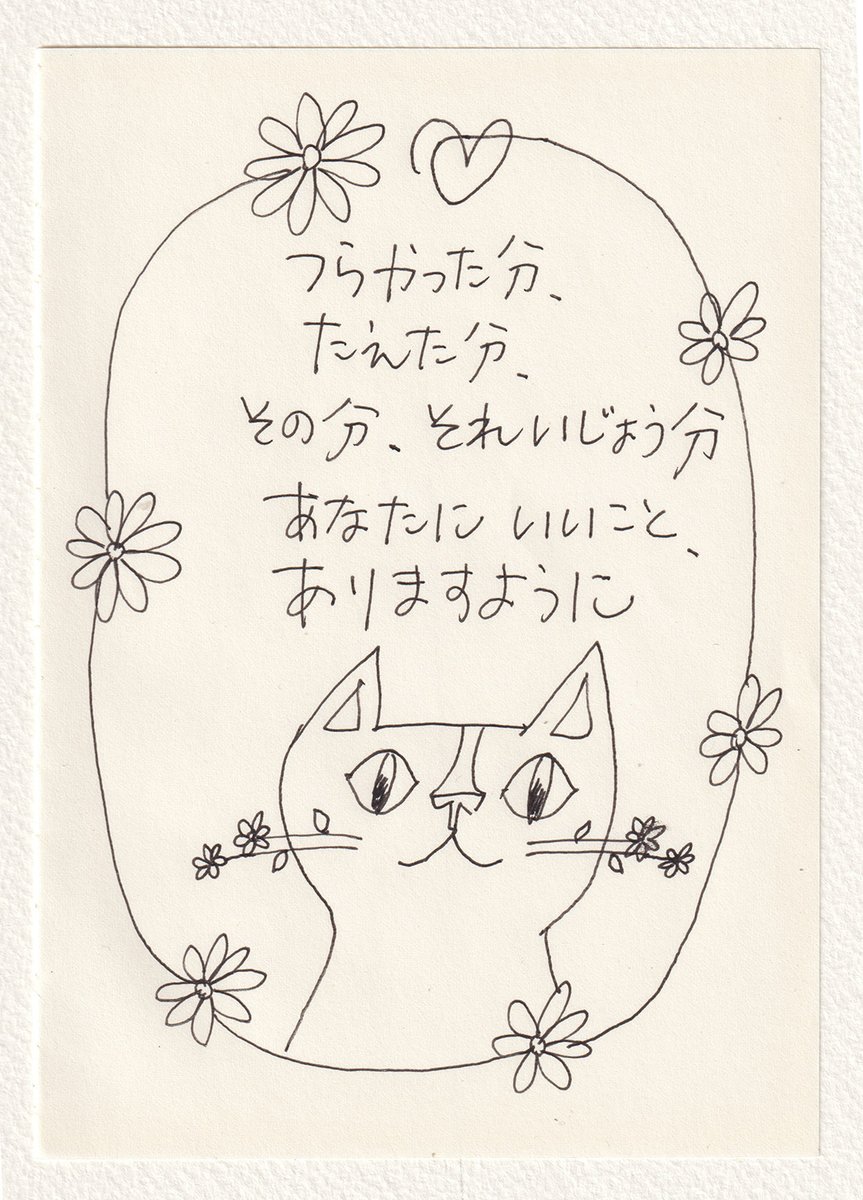 つらかった分、
たえた分、
その分、それいじょう分
あなたに いいこと、
ありますように